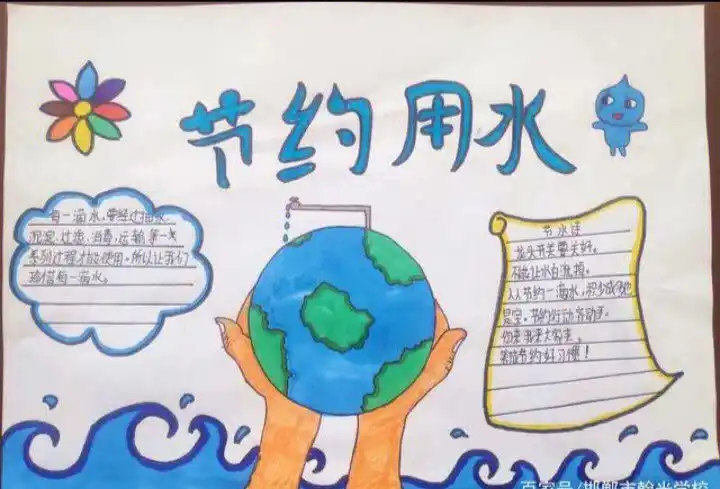 节约用水
每一滴水,要经过抽水、
沉淀、过滤、消毒、运输等一系
系列过程才能使用。所以让我们
珍惜每一滴水。
节水谣
龙头开关要关好。
不能让水白流掉。
人人节约一滴水,积少成多
是宝。节约行动齐动手。
你来我来大家来。
养成节约好习惯!
百家号/邯郸市翰光学校